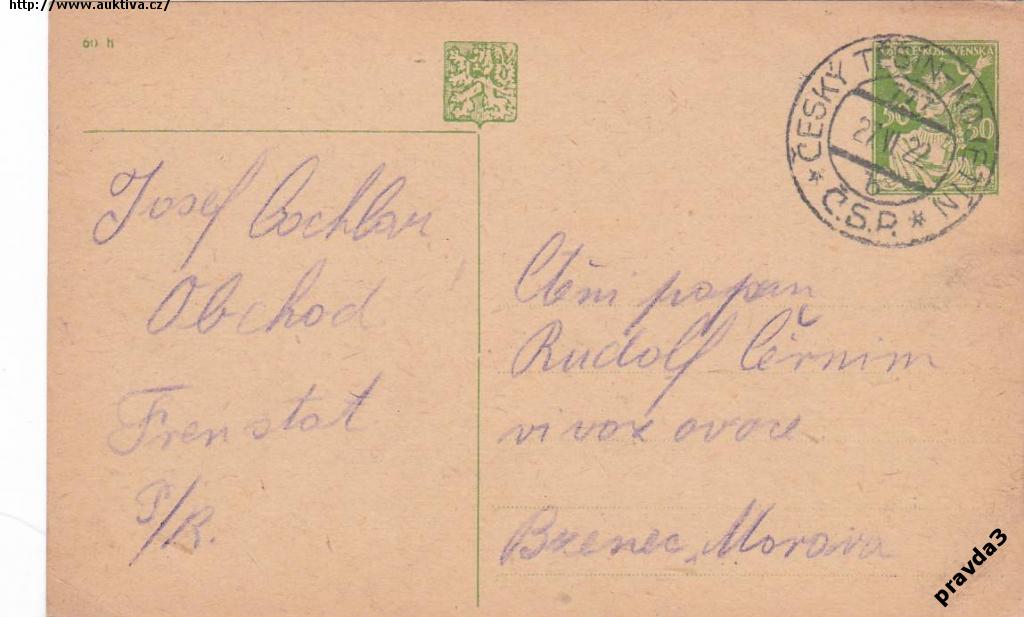 http://www.auktiva.cz/
60 h
ČESKOSLOVENSKÁ
50 50
ČESKÝ TĚŠÍN-
Č.S.P.
6
Josef
Obchod
Frenstat
P/R.
Ctěni popan
Rudolf Cěrnim
vivoz ovoce
Bzenec, Morava
pravda3